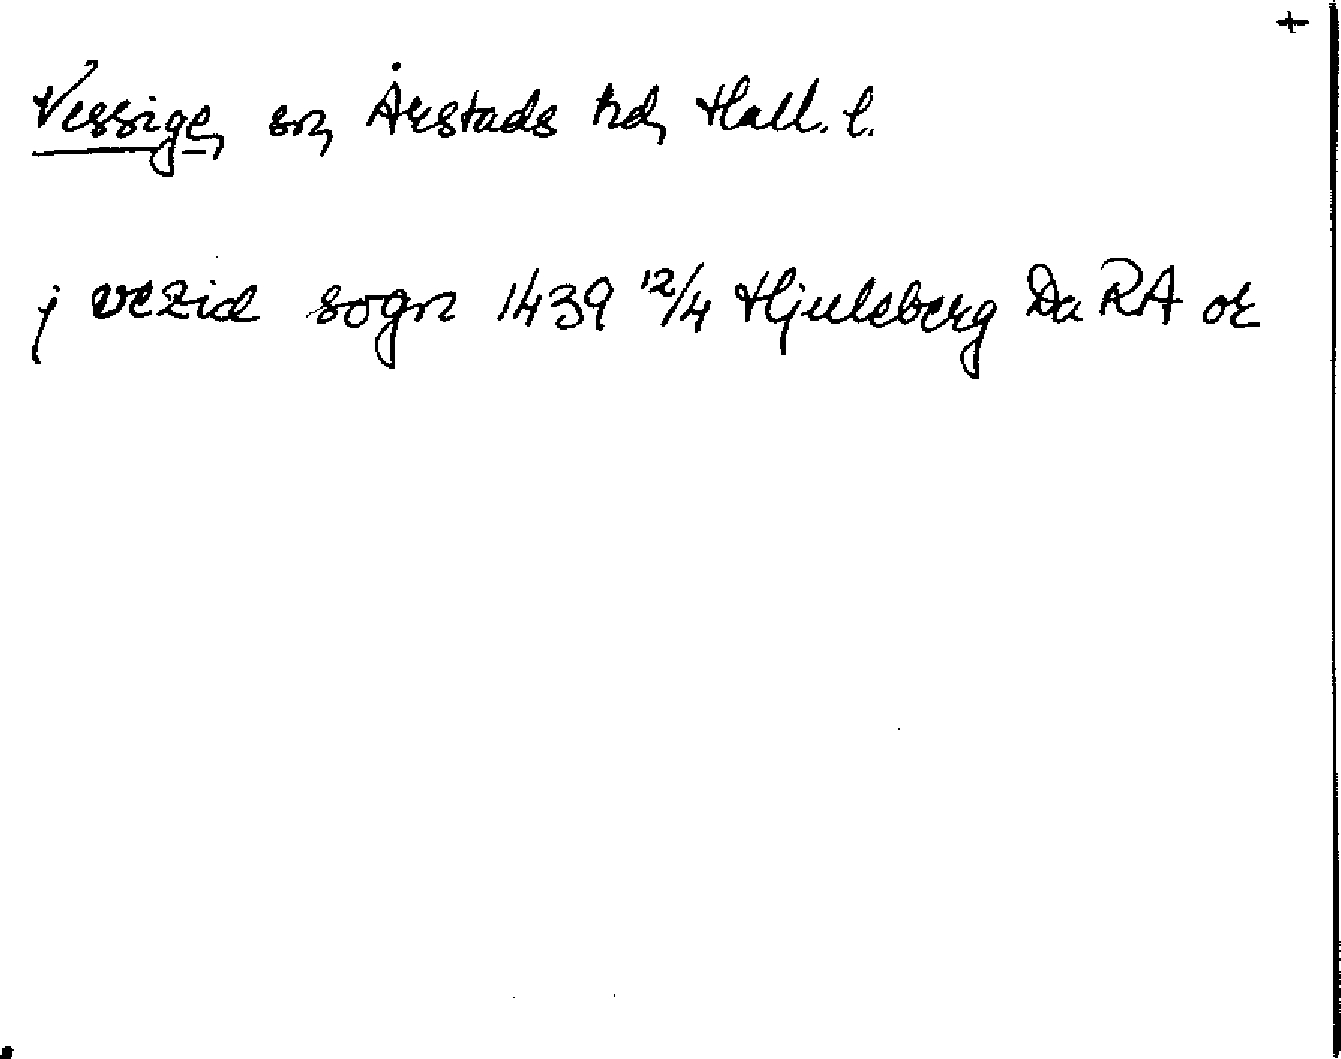 +
Vessige, sn, Årstads hd, Hall. l.
j vezid sogn 1439 12/4 Hjulsberg Da RA or